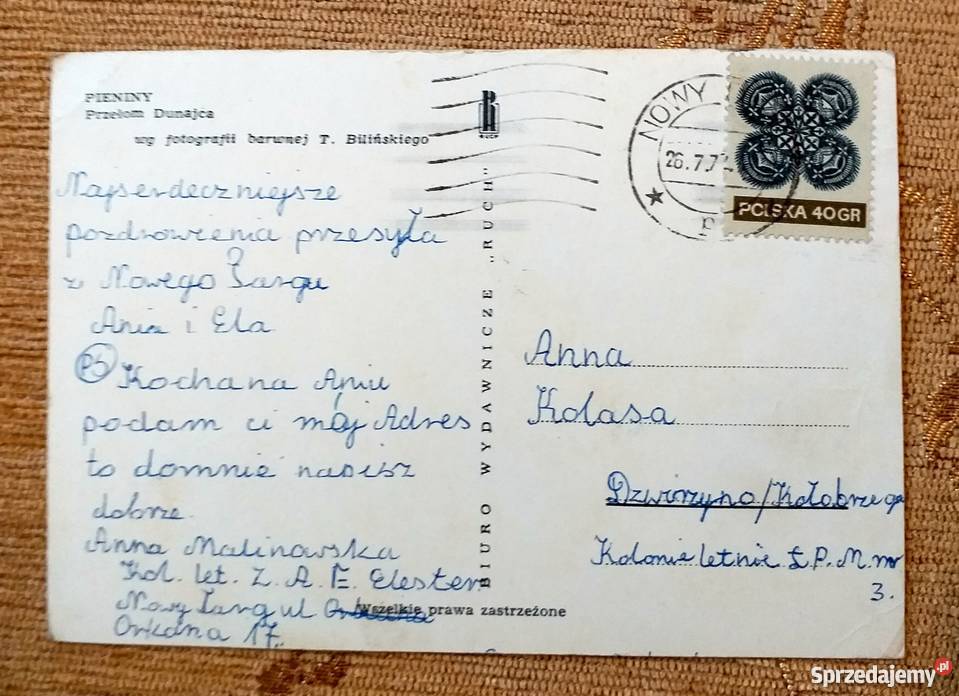 PIENINY
Przełom Dunajca
wg fotografii barwnej T. Bilińskiego
Najserdeczniejsze
pozdrowienia przesyła
z Nowego Targu
Ania i Ela
PS Kochana Aniu
podam ci mój Adres
to domnie napisz
dobrze.
Anna Malinowska
Kol. let. Z. A. E. Elester
Nowy Targ ul
Orkana 17.
RUCH
BIURO WYDAWNICZE „RUCH"
Wszelkie prawa zastrzeżone
NOWY
26.7.7
POLSKA 40 GR
Anna
Kolasa
Dzwirzyno/Kołobrzega
Kolonie letnie Ł.P.M. nr
3.
Sprzedajemy.pl